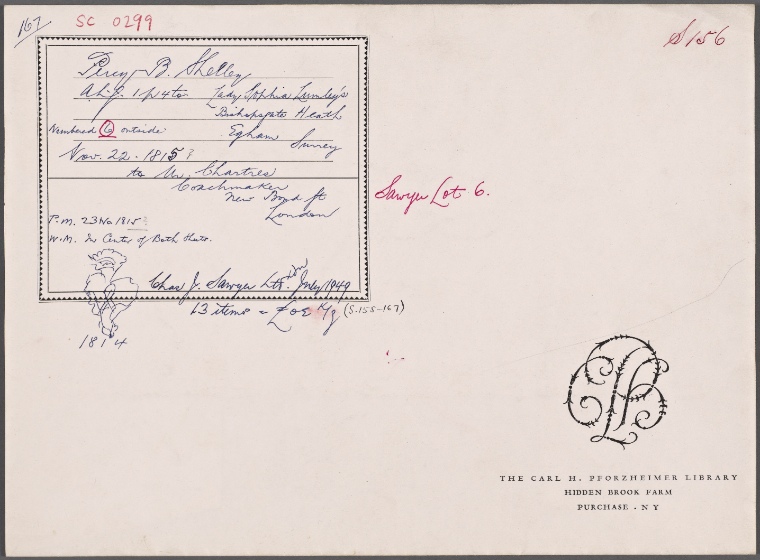 167
SC 0299
S 156
Percy B. Shelley
A.L.S. 1 p 4to Lady Sophia Lumley's
Bishopsgate Heath
Numbered 6 outside Egham Surrey
Nov. 22. 1815?
to Mr. Chartres
Coachmaker
New Bond St
London
Sawyer Lot 6.
P.M. 23 No 1815?
W.M. In Center of Both Sheets.
Chas J. Sawyer Ltd. Ldn July 1949
13 items = (S.155-167)
1814
THE CARL H. PFORZHEIMER LIBRARY
HIDDEN BROOK FARM
PURCHASE · N Y